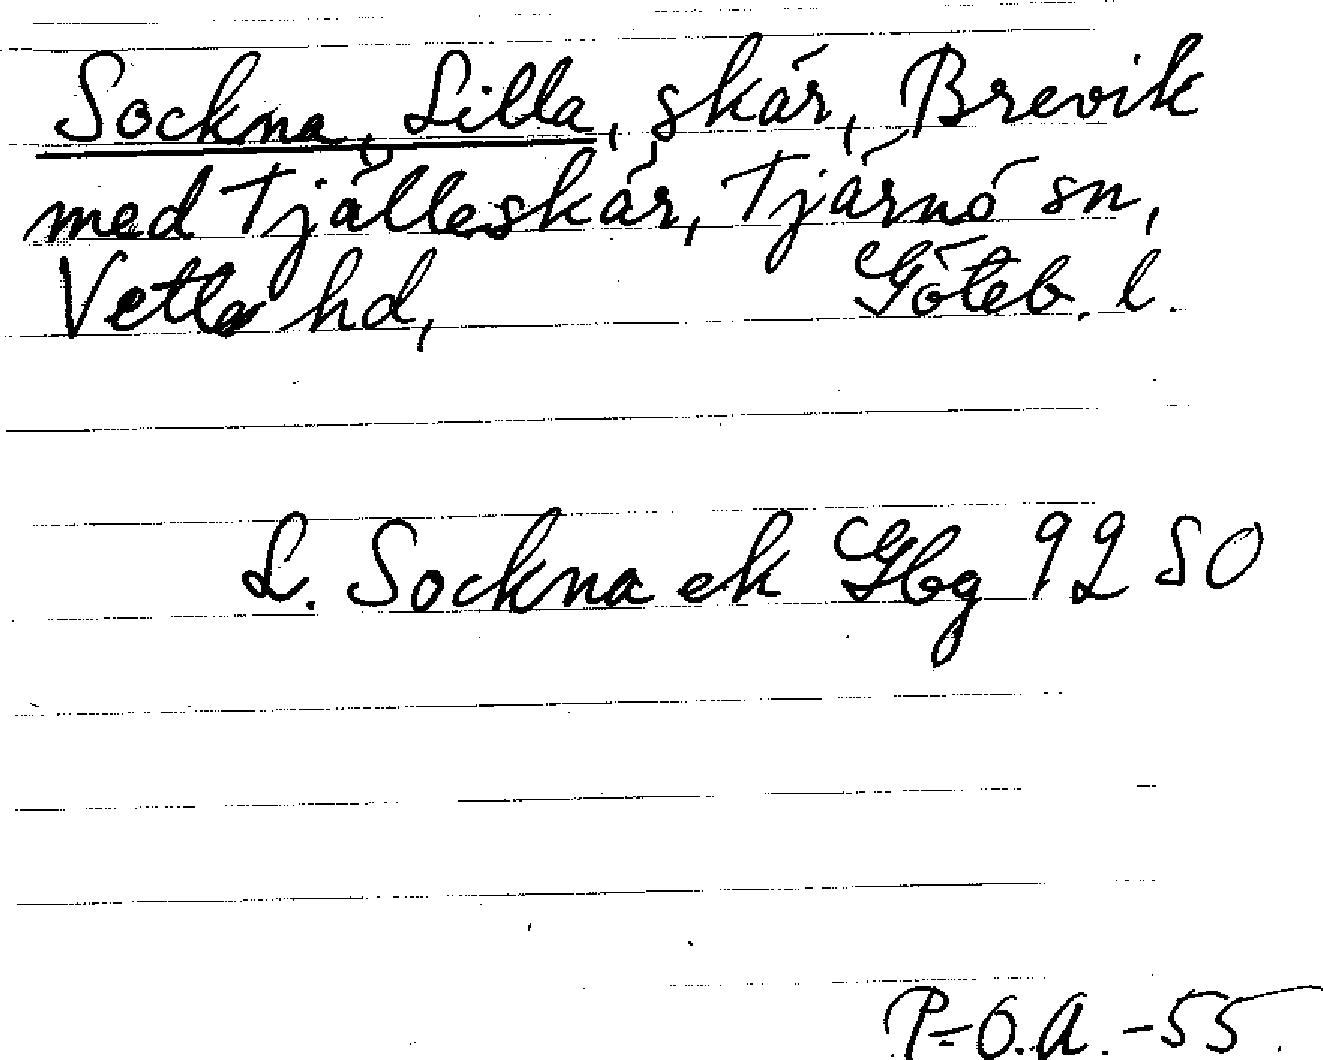 Sockna, Lilla, skär, Brevik
med Tjälleskär, Tjärnö sn,
Vette hd, Göteb. l.
L. Sockna ek Gbg 92 SO
P-O.A. -55.